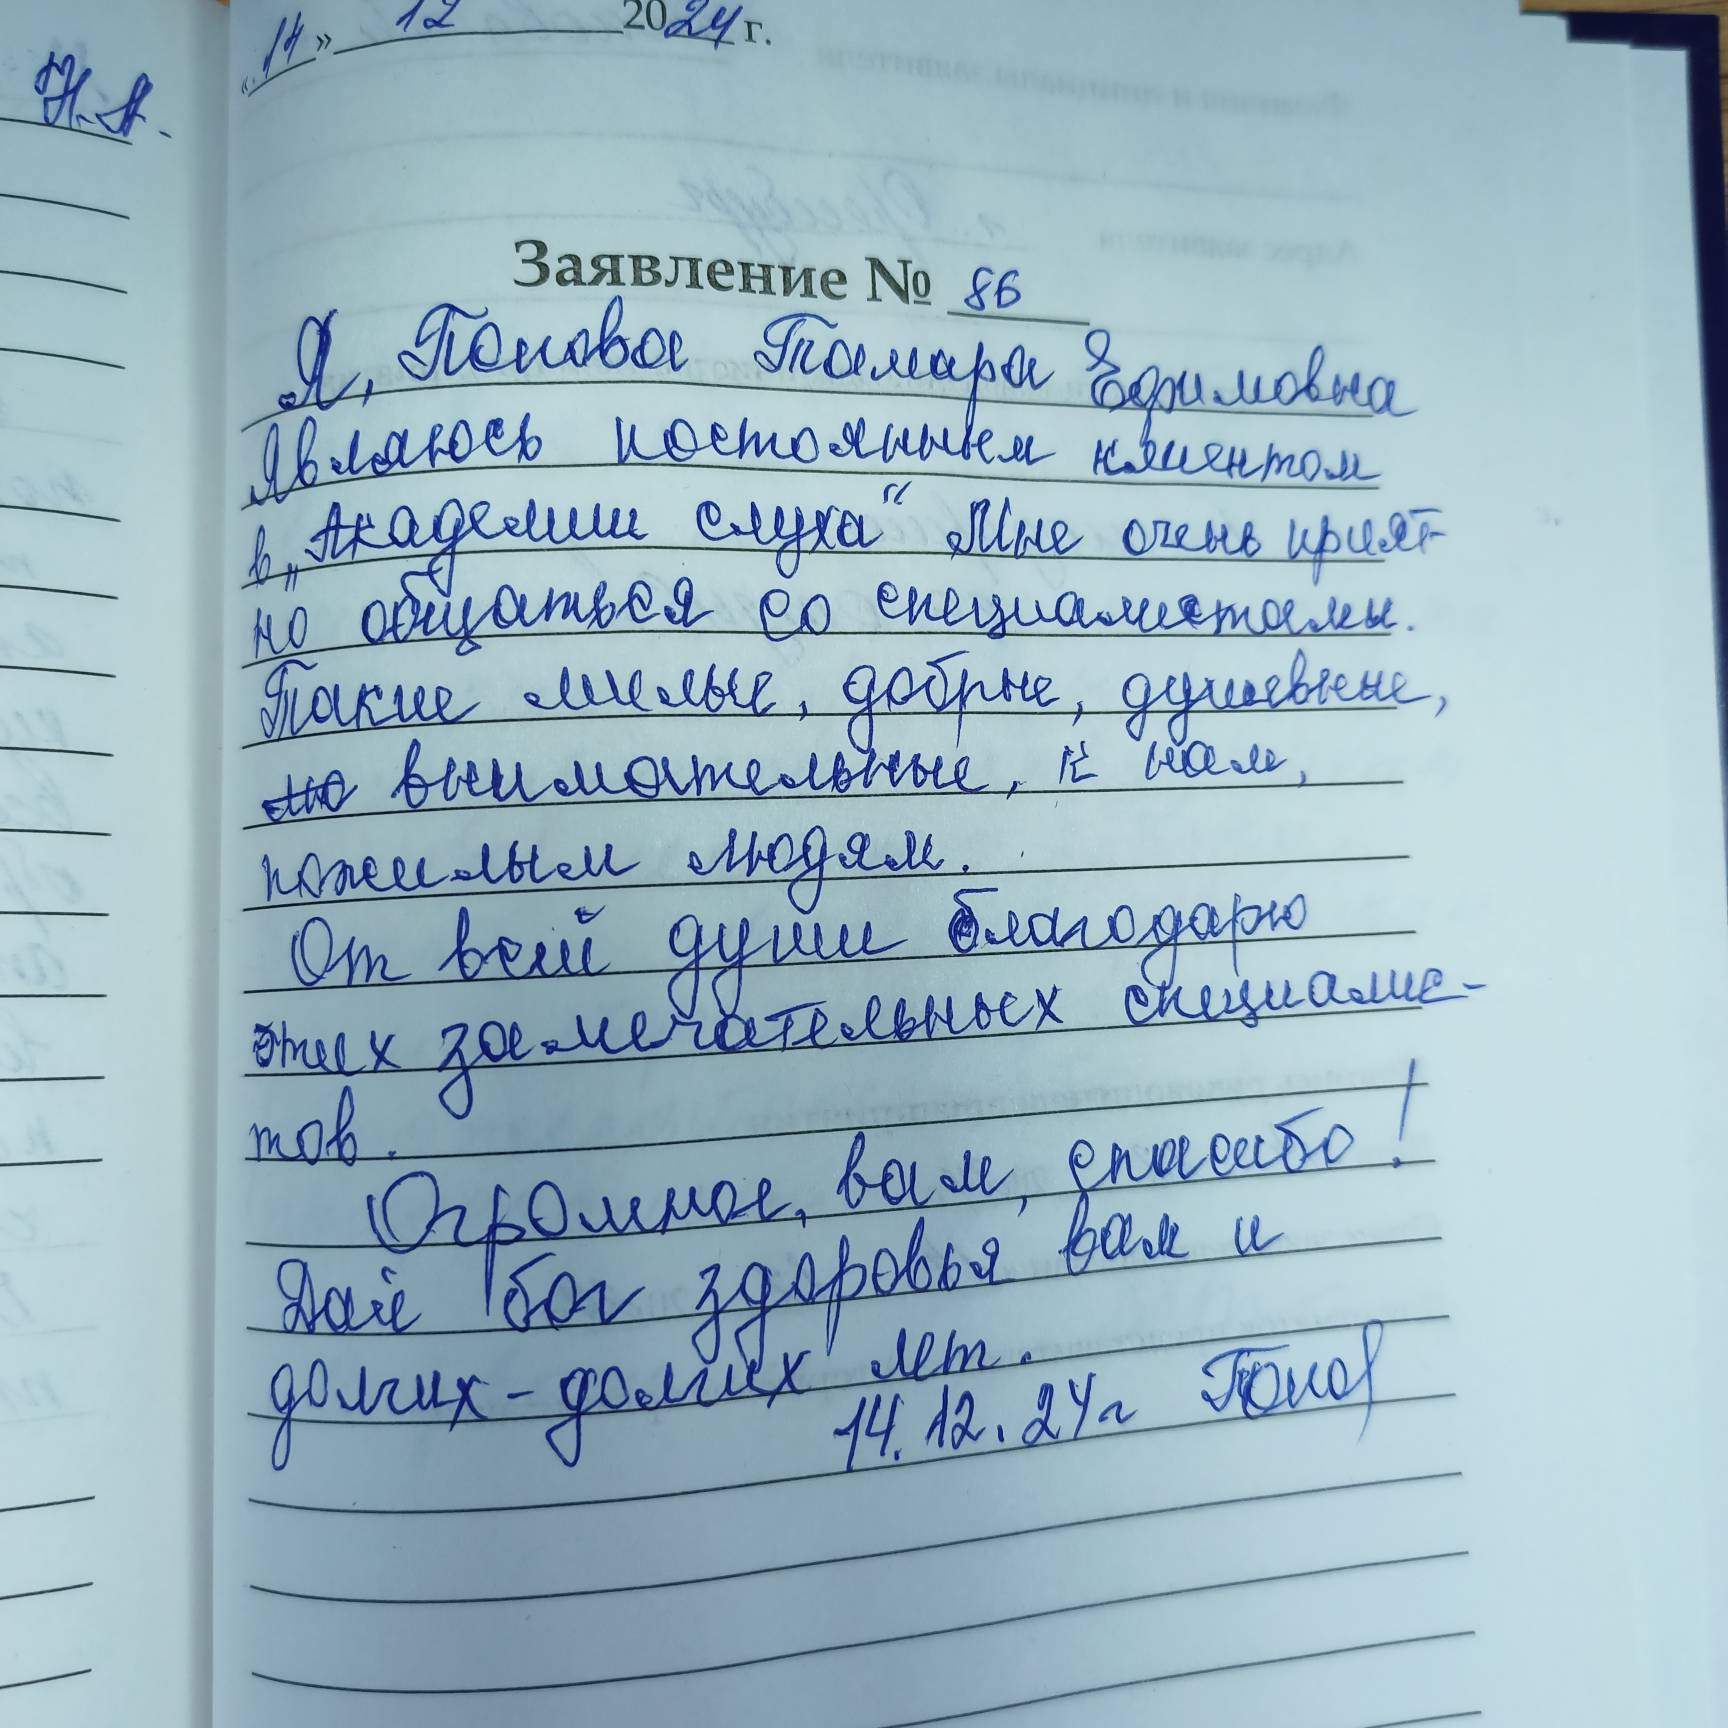 Н.А.
«14» 12 2024 г.
Заявление № 86
Я, Попова Тамара Ефимовна
являюсь постоянным клиентом
в „Академии слуха“ Мне очень прият-
но общаться со специалистамы.
Такие милые, добрые, душевные,
внимательные, к нам,
пожилым людям.
От всей души благодарю
этих замечательных специалис-
тов.
Огромное, вам, спасибо!
Дай бог здоровья вам и
долгих-долгих лет.
14.12.24г Попов